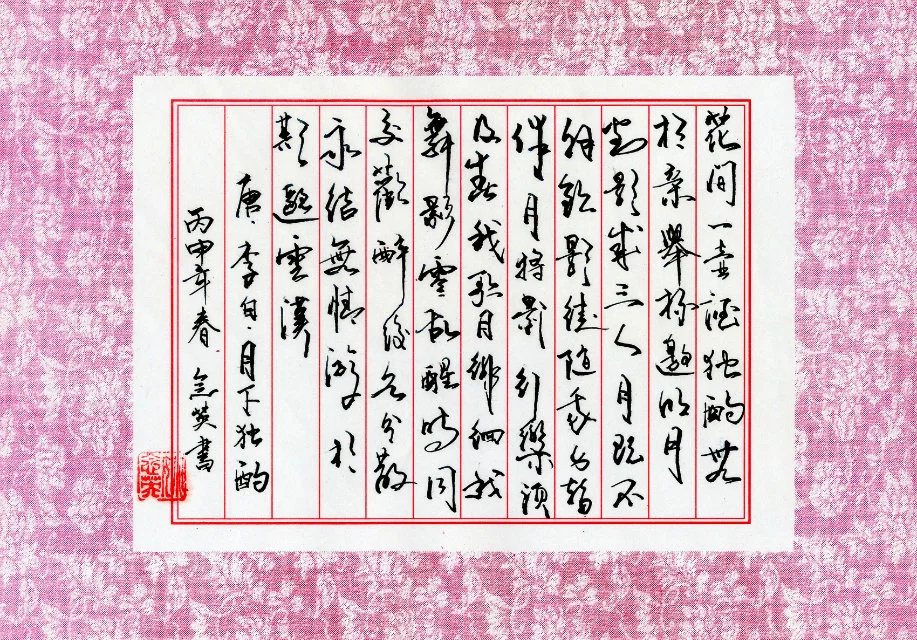 花間一壶酒独酌無
相亲舉杯邀明月
對影成三人月既不
解飲影徒随我身暫
伴月将影行樂須
及春我歌月徘徊我
舞影零乱醒時同
交歡醉後各分散
永结無情游相
期邈雲漢
唐·李白·月下独酌
丙申年春 英書